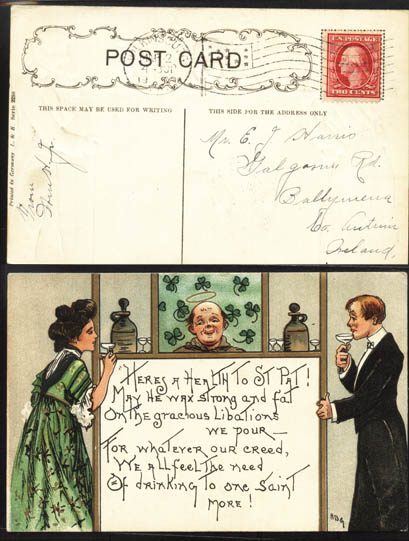 POST CARD
U.S. POSTAGE
TWO CENTS
THIS SPACE MAY BE USED FOR WRITING
THIS SIDE FOR THE ADDRESS ONLY
Printed in Germany L & R Serie 2236
From
Mr. E. J. Harris
Galgorm Rd.
Ballymena
Co. Antrim
Ireland.
HERES A HEALTH TO ST PAT!
MAY HE WAX STRONG AND FAT
ON THE GRACIOUS LIBATIONS
WE POUR—
FOR WHATEVER OUR CREED,
WE ALL FEEL THE NEED
OF DRINKING TO ONE SAINT
MORE!
HBG